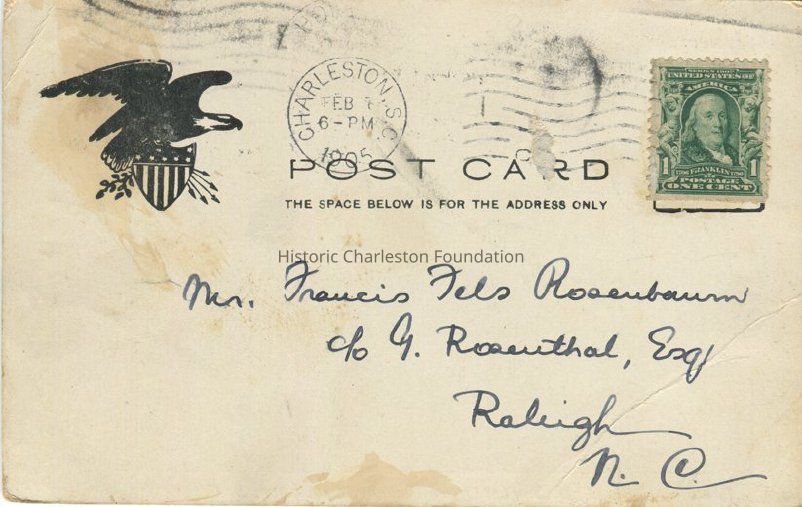 CHARLESTON, S.C.
FEB
6-PM
1905
SERIES 1902
UNITED STATES OF
AMERICA
1 1
FRANKLIN
POSTAGE
ONE CENT
POST CARD
THE SPACE BELOW IS FOR THE ADDRESS ONLY
Historic Charleston Foundation
Mr. Francis Fels Rosenbaum
c/o G. Rosenthal, Esq
Raleigh
N. C.